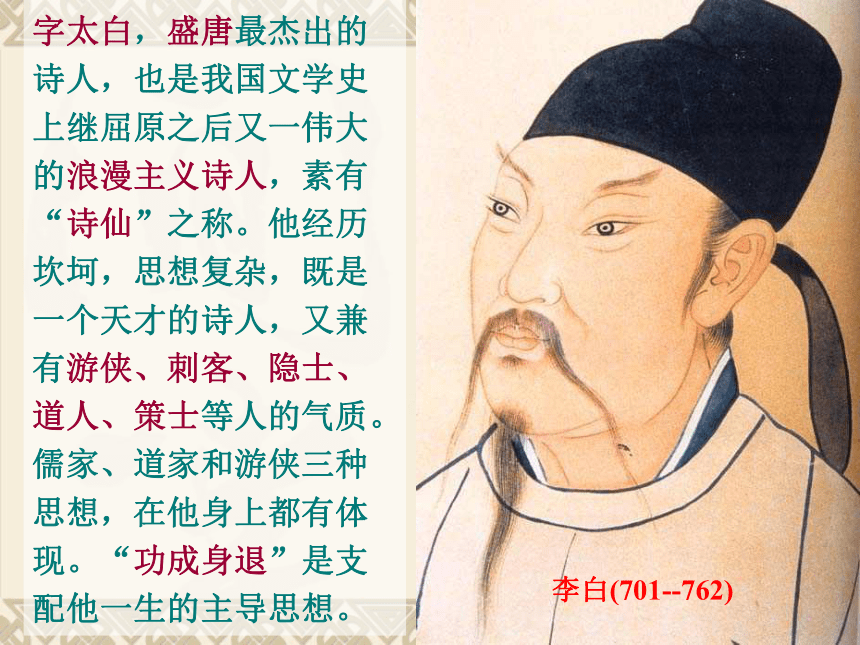 字太白，盛唐最杰出的
诗人，也是我国文学史
上继屈原之后又一伟大
的浪漫主义诗人，素有
“诗仙”之称。他经历
坎坷，思想复杂，既是
一个天才的诗人，又兼
有游侠、刺客、隐士、
道人、策士等人的气质。
儒家、道家和游侠三种
思想，在他身上都有体
现。“功成身退”是支
配他一生的主导思想。
李白(701--762)